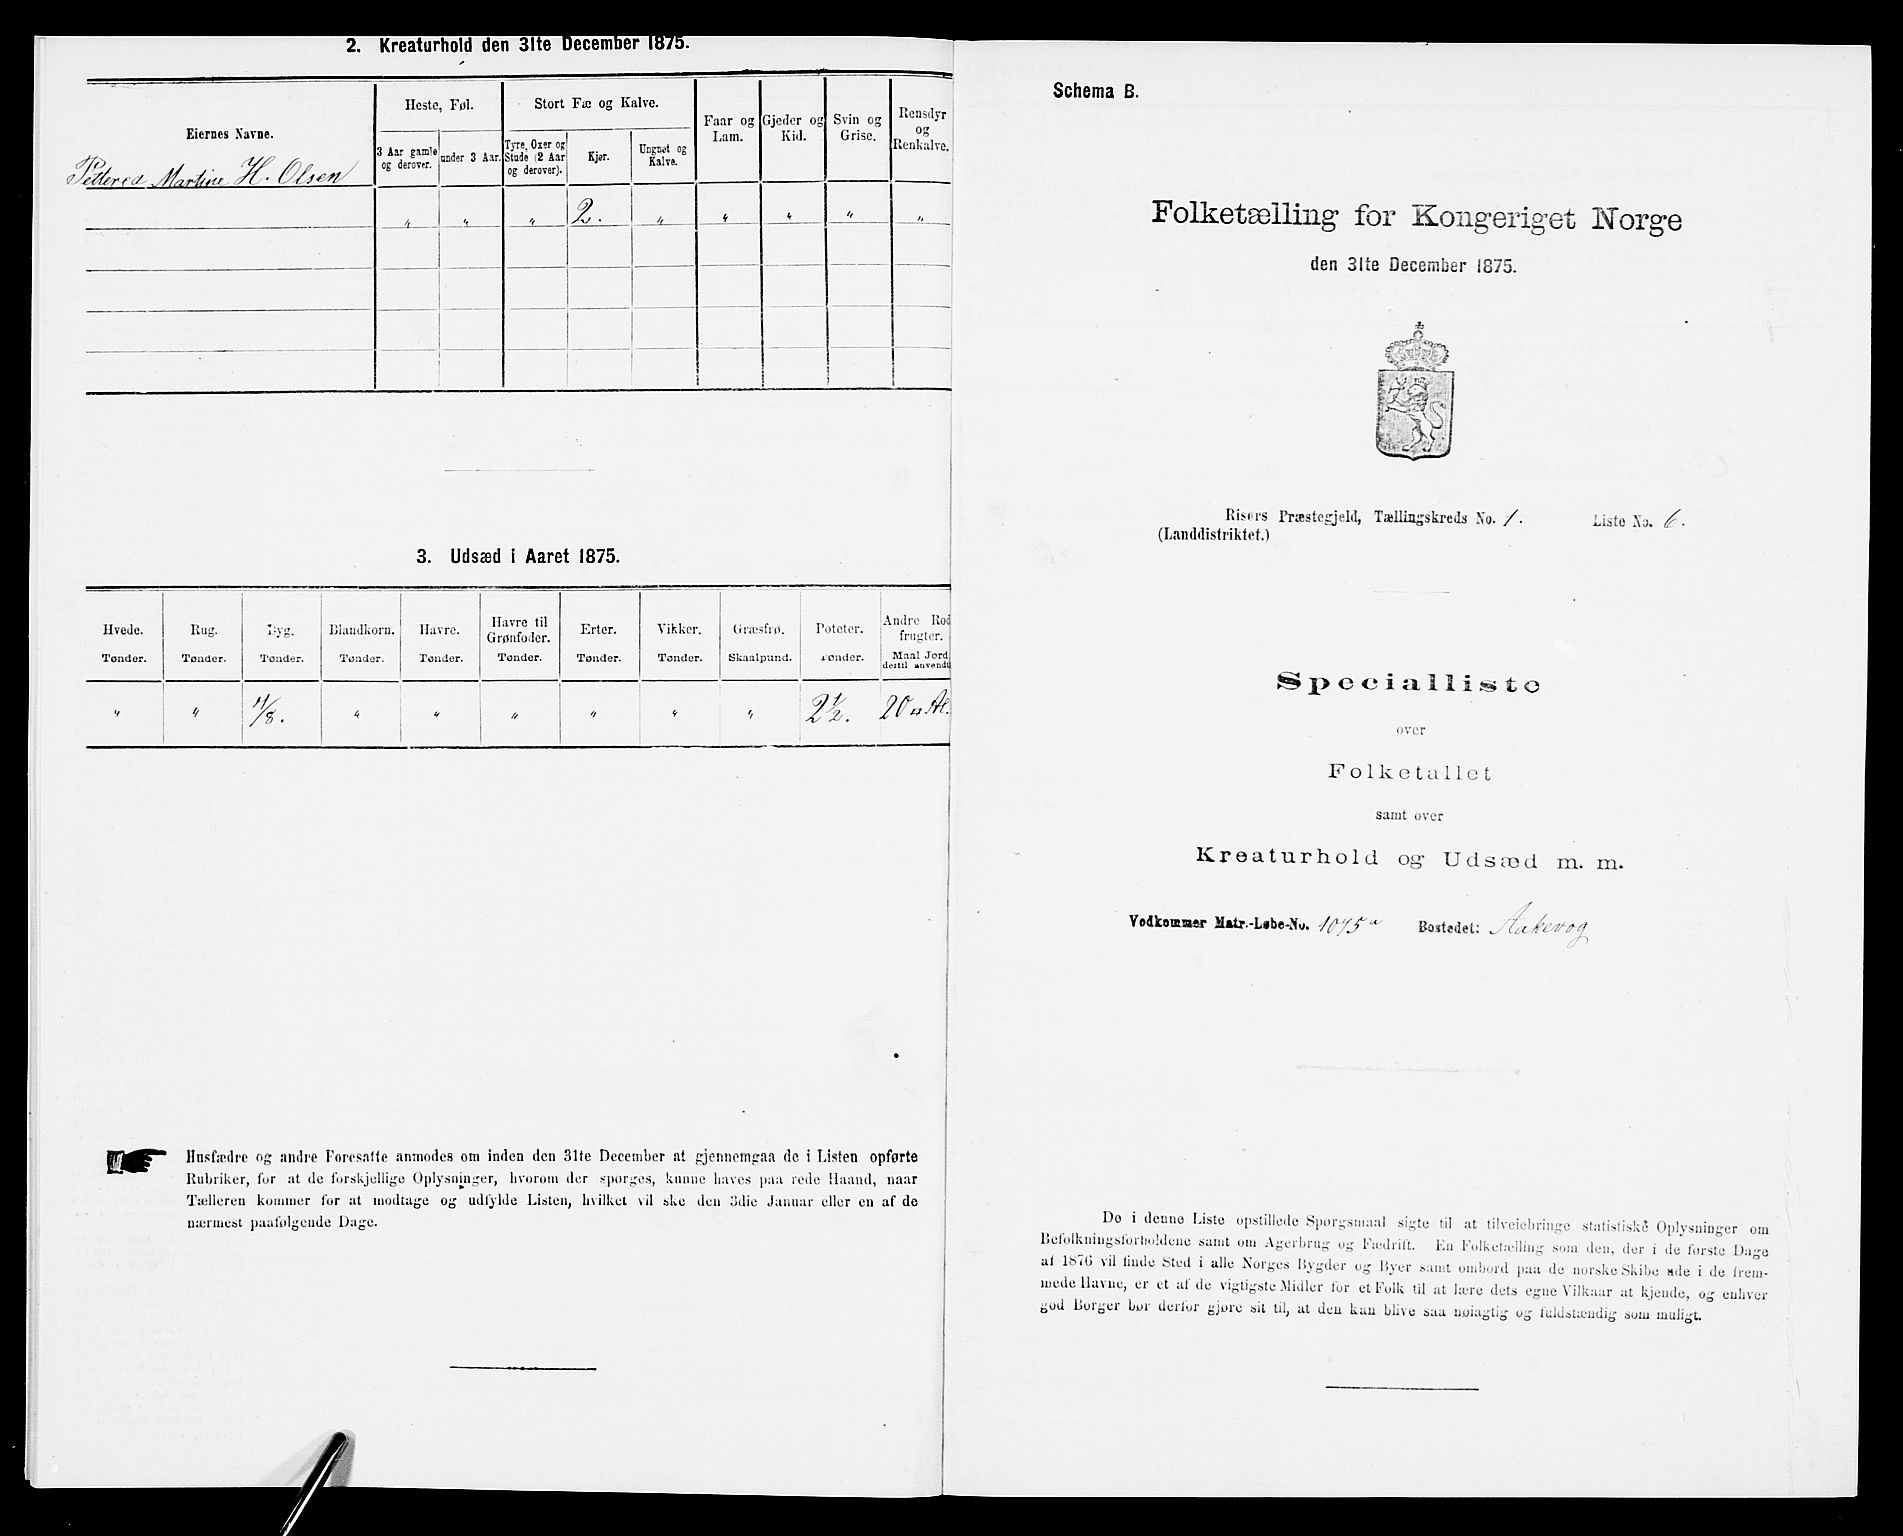 2. Kreaturhold den 31te December 1875.
Eiernes Navne.
Heste, Føl.
Stort Fæ og Kalve.
Faar og Lam.
Gjeder og Kid.
Svin og Grise.
Rensdyr og Renkalve.
3 Aar gamle og derover.
under 3 Aar.
Tyre, Oxer og Stude (2 Aar og derover).
Kjør.
Ungnøt og Kalve.
Martine H. Olsen
" " " 2. " " " " "
3. Udsæd i Aaret 1875.
Hvede. Rug. Byg. Blandkorn. Havre. Havre til Grønfoder. Erter. Vikker. Græsfrø. Poteter. Andre Rodfrugter.
Tønder. Tønder. Tønder. Tønder. Tønder. Tønder. Tønder. Tønder. Skaalpund. Tønder. Maal Jord dertil anvendt
" " 4/8. " " " " " " 2 1/2. 20 □ Al.
Husfædre og andre Foresatte anmodes om inden den 31te December at gjennemgaa de i Listen opførte
Rubriker, for at de forskjellige Oplysninger, hvorom der spørges, kunne haves paa rede Haand, naar
Tælleren kommer for at modtage og udfylde Listen, hvilket vil ske den 3die Januar eller en af de
nærmest paafølgende Dage.
Schema B.
Folketælling for Kongeriget Norge
den 31te December 1875.
Risørs Præstegjeld, Tællingskreds No. 1. Liste No. 6.
(Landdistriktet.)
Specialliste
over
Folketallet
samt over
Kreaturhold og Udsæd m. m.
Vedkommer Matr.-Løbe-No. 1075 a Bostedet: Aakevog
De i denne Liste opstillede Spørgsmaal sigte til at tilveiebringe statistiske Oplysninger om
Befolkningsforholdene samt om Agerbrug og Fædrift. En Folketælling som den, der i de første Dage
af 1876 vil finde Sted i alle Norges Bygder og Byer samt ombord paa de norske Skibe ude i de frem-
mede Havne, er et af de vigtigste Midler for et Folk til at lære dets egne Vilkaar at kjende, og enhver
god Borger bør derfor gjøre sit til, at den kan blive saa nøiagtig og fuldstændig som muligt.